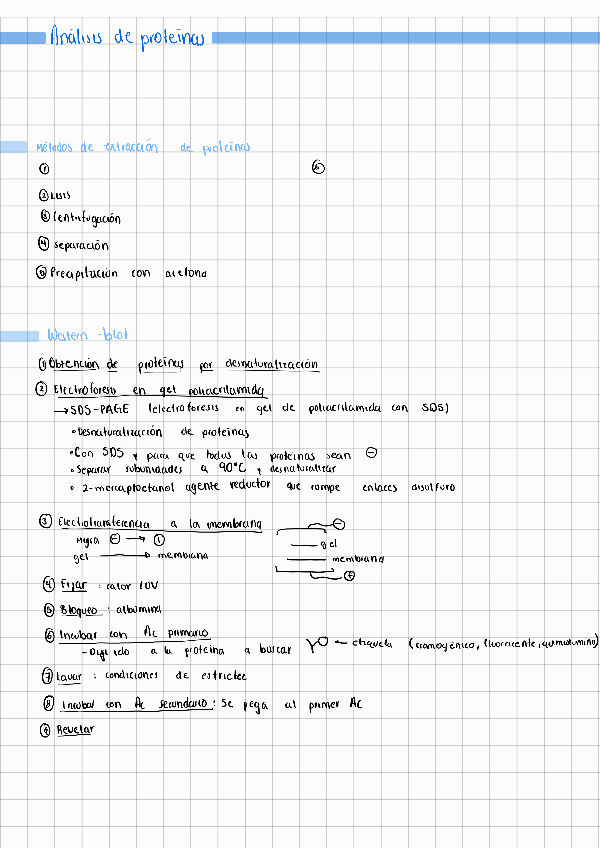 Análisis de proteínas
Métodos de extracción de proteínas
①
⑥
② Lisis
③ Centrifugación
④ Separación
⑤ Precipitación con acetona
Western -blot
① Obtención de proteínas por desnaturalización
② Electroforesis en gel poliacrilamida
→ SDS-PAGE (electroforesis en gel de poliacrilamida con SDS)
• Desnaturalización de proteínas
• Con SDS y para que todas las proteínas sean ⊖
• Separar subunidades a 90°C y desnaturalizar
• 2-mercaptoetanol agente reductor que rompe enlaces disulfuro
③ Electrotransferencia a la membrana
migra ⊖ → ⊕
gel → membrana
⊖
gel
membrana
⊕
④ Fijar : calor /UV
⑤ Bloqueo : albúmina
⑥ Incubar con Ac primario
- Dirigido a la proteína a buscar ← etiqueta (cromogénico, fluorescente, quimiolumino)
⑦ Lavar : condiciones de estrictez
⑧ Incubar con Ac secundario : Se pega al primer Ac
⑨ Revelar